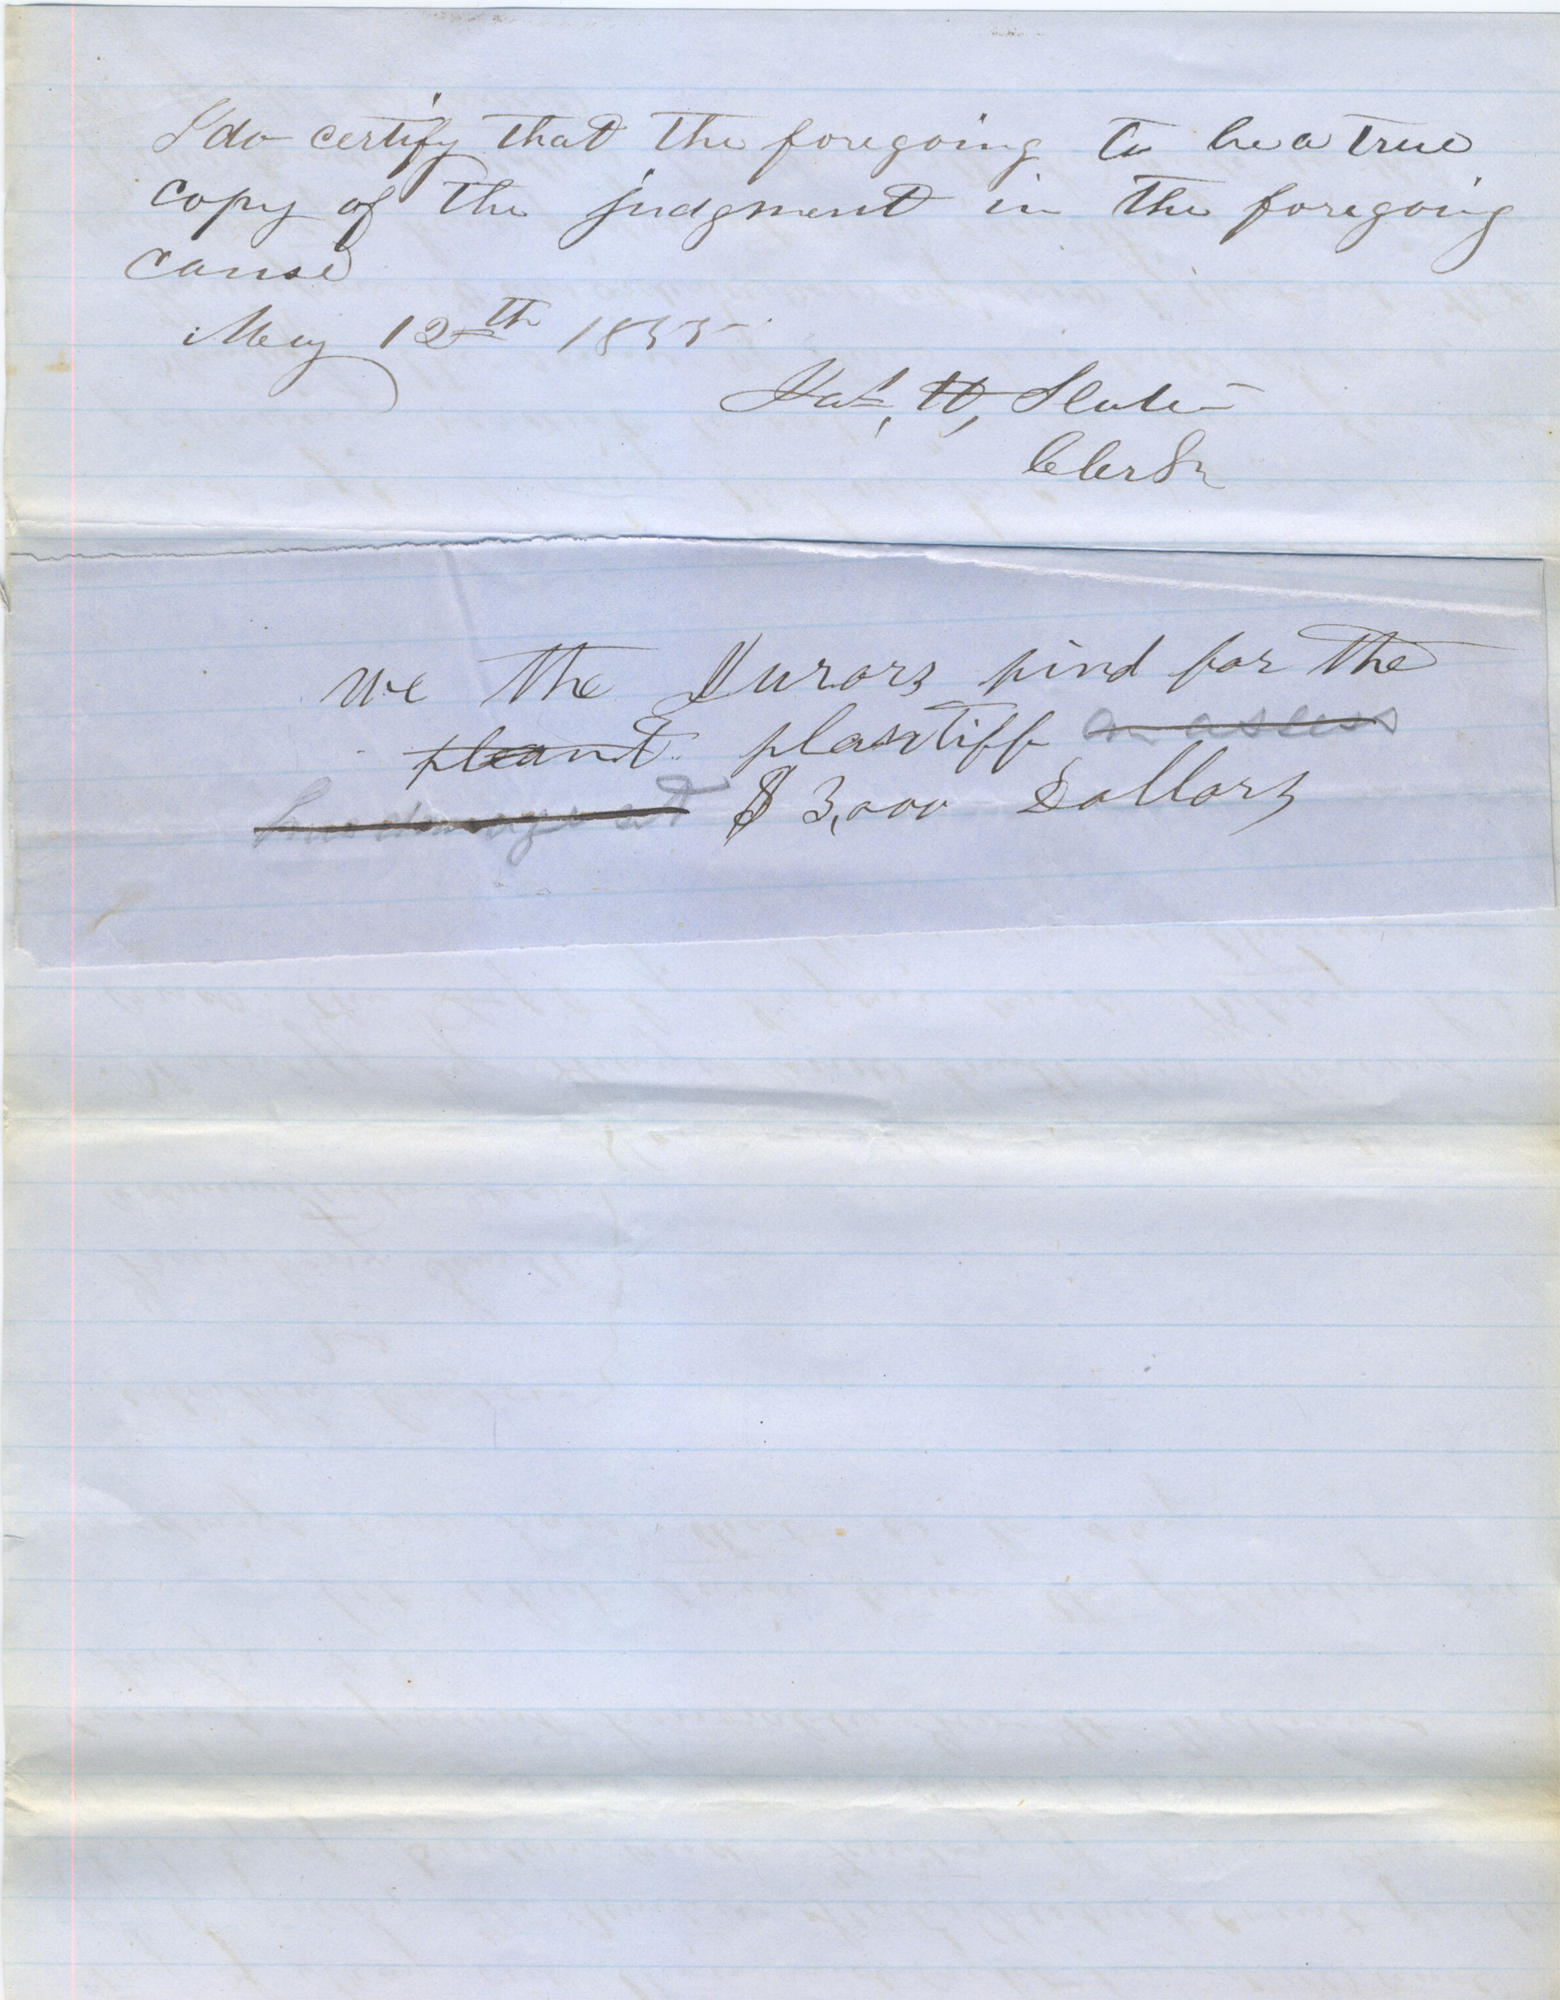 I do certify that the foregoing to be a true
copy of the judgment in the foregoing
cause
May 12th 1855
Jas. H, Slater
Clerk
We the Jurors find for the
pleant plaintiff an assess
damage at $ 3,000 Dollars